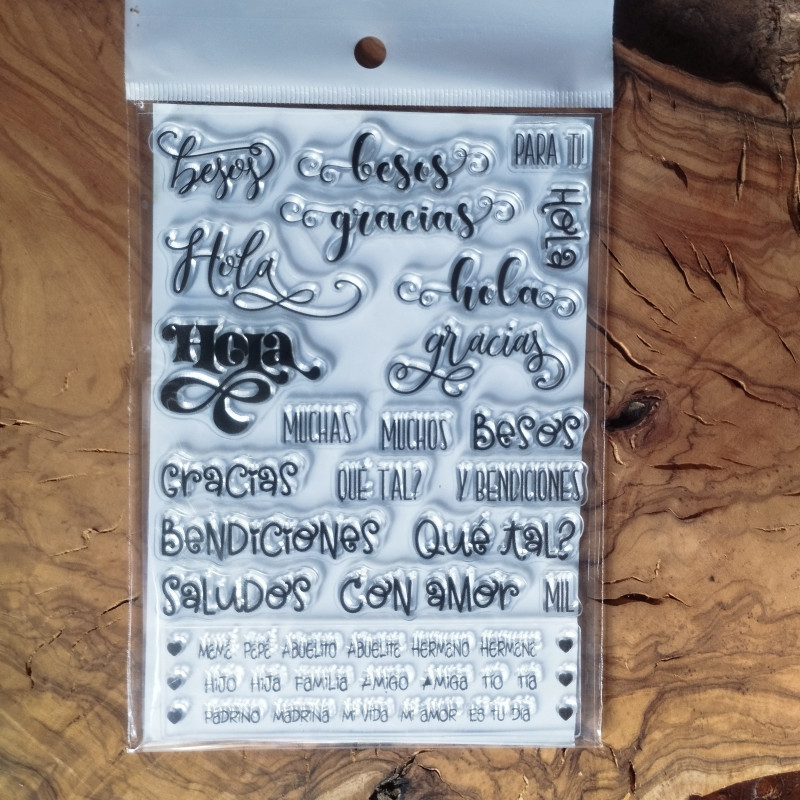 besos besos PARA TI
gracias Hola
Hola hola
Hola gracias
MUCHAS MUCHOS Besos
Gracias QUÉ TAL? Y BENDICIONES
BeNDiCiONes Qué tal?
SaLUDOS CON aMOr MIL
Mamá Papá ABUELITO ABUELITA HERMANO HERMANA
HIJO HIJA FAMILIA AMIGO AMIGA TIO TIA
PADRINO MADRINA MI VIDA MI AMOR ES TU DIA